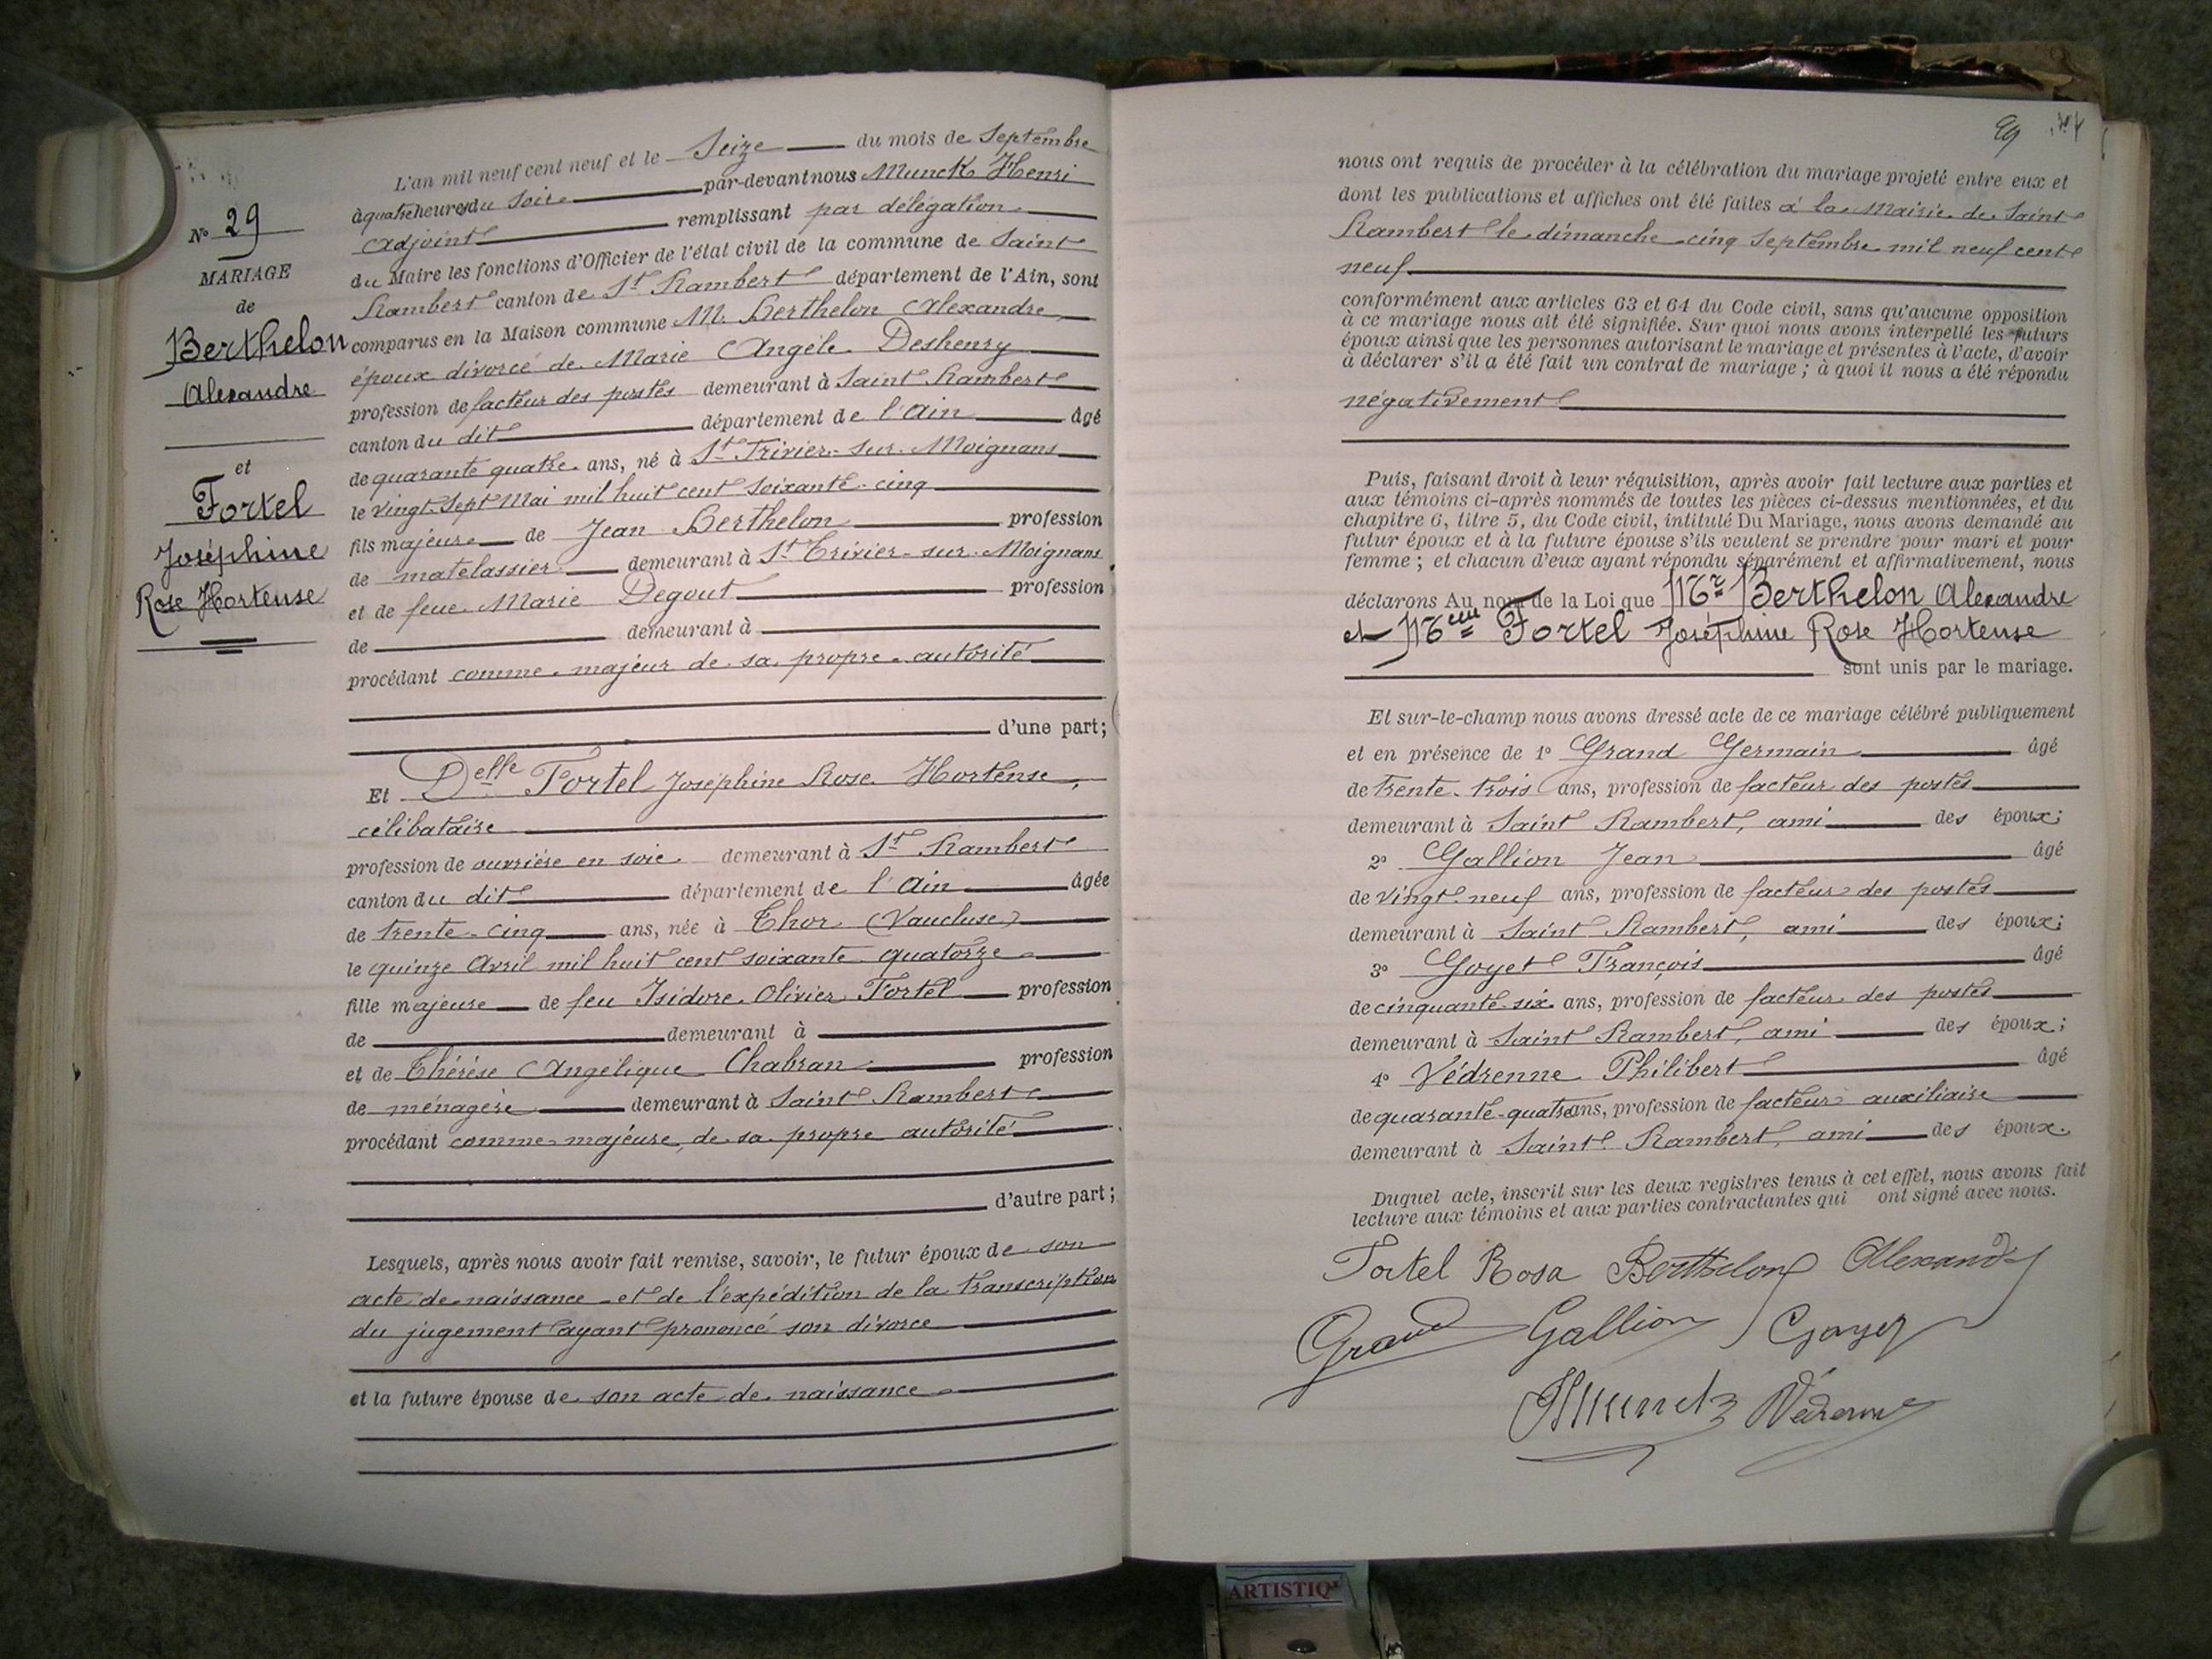 N° 29
MARIAGE
de
Berthelon
Alexandre
et
Fortel
Joséphine
Rose Hortense
L'an mil neuf cent neuf et le Seize du mois de Septembre
à quatre heures du Soir par-devant nous Munck Henri
adjoint remplissant par délégation
du Maire les fonctions d'Officier de l'état civil de la commune de Saint
Rambert canton de St Rambert département de l'Ain, sont
comparus en la Maison commune M. Berthelon Alexandre
époux divorcé de Marie Angèle Deshenry
profession de facteur des postes demeurant à Saint Rambert
canton du dit département de l'Ain âgé
de quarante quatre ans, né à St Trivier-sur-Moignans
le vingt-sept Mai mil huit cent soixante-cinq
fils majeur de Jean Berthelon profession
de matelassier demeurant à St Trivier-sur-Moignans
et de feue Marie Degout profession
de demeurant à
procédant comme majeur de sa propre autorité
d'une part;
Et Delle Fortel Joséphine Rose Hortense,
célibataire
profession de ouvrière en soie demeurant à St Rambert
canton du dit département de l'Ain âgée
de trente-cinq ans, née à Thor (Vaucluse)
le quinze Avril mil huit cent soixante-quatorze
fille majeure de feu Isidore Olivier Fortel profession
de demeurant à
et de Thérèse Angélique Chabran profession
de ménagère demeurant à Saint Rambert
procédant comme majeure, de sa propre autorité
d'autre part;
Lesquels, après nous avoir fait remise, savoir, le futur époux de son
acte de naissance et de l'expédition de la transcription
du jugement ayant prononcé son divorce
et la future épouse de son acte de naissance
nous ont requis de procéder à la célébration du mariage projeté entre eux et
dont les publications et affiches ont été faites à la Mairie de Saint
Rambert le dimanche cinq Septembre mil neuf cent
neuf
conformément aux articles 63 et 64 du Code civil, sans qu'aucune opposition
à ce mariage nous ait été signifiée. Sur quoi nous avons interpellé les futurs
époux ainsi que les personnes autorisant le mariage et présentes à l'acte, d'avoir
à déclarer s'il a été fait un contrat de mariage; à quoi il nous a été répondu
négativement
Puis, faisant droit à leur réquisition, après avoir fait lecture aux parties et
aux témoins ci-après nommés de toutes les pièces ci-dessus mentionnées, et du
chapitre 6, titre 5, du Code civil, intitulé Du Mariage, nous avons demandé au
futur époux et à la future épouse s'ils veulent se prendre pour mari et pour
femme; et chacun d'eux ayant répondu séparément et affirmativement, nous
déclarons Au nom de la Loi que Mr Berthelon Alexandre
et Melle Fortel Joséphine Rose Hortense
sont unis par le mariage.
Et sur-le-champ nous avons dressé acte de ce mariage célébré publiquement
et en présence de 1° Grand Germain âgé
de trente-trois ans, profession de facteur des postes
demeurant à Saint Rambert, ami des époux;
2° Gallion Jean âgé
de vingt-neuf ans, profession de facteur des postes
demeurant à Saint Rambert, ami des époux;
3° Goyet François âgé
de cinquante-six ans, profession de facteur des postes
demeurant à Saint Rambert, ami des époux;
4° Védrenne Philibert âgé
de quarante-quatre ans, profession de facteur auxiliaire
demeurant à Saint Rambert, ami des époux.
Duquel acte, inscrit sur les deux registres tenus à cet effet, nous avons fait
lecture aux témoins et aux parties contractantes qui ont signé avec nous.
Fortel Rosa Berthelon Alexandre
Grand Gallion Goyet
HMunck Védrenne
ARTISTIQ